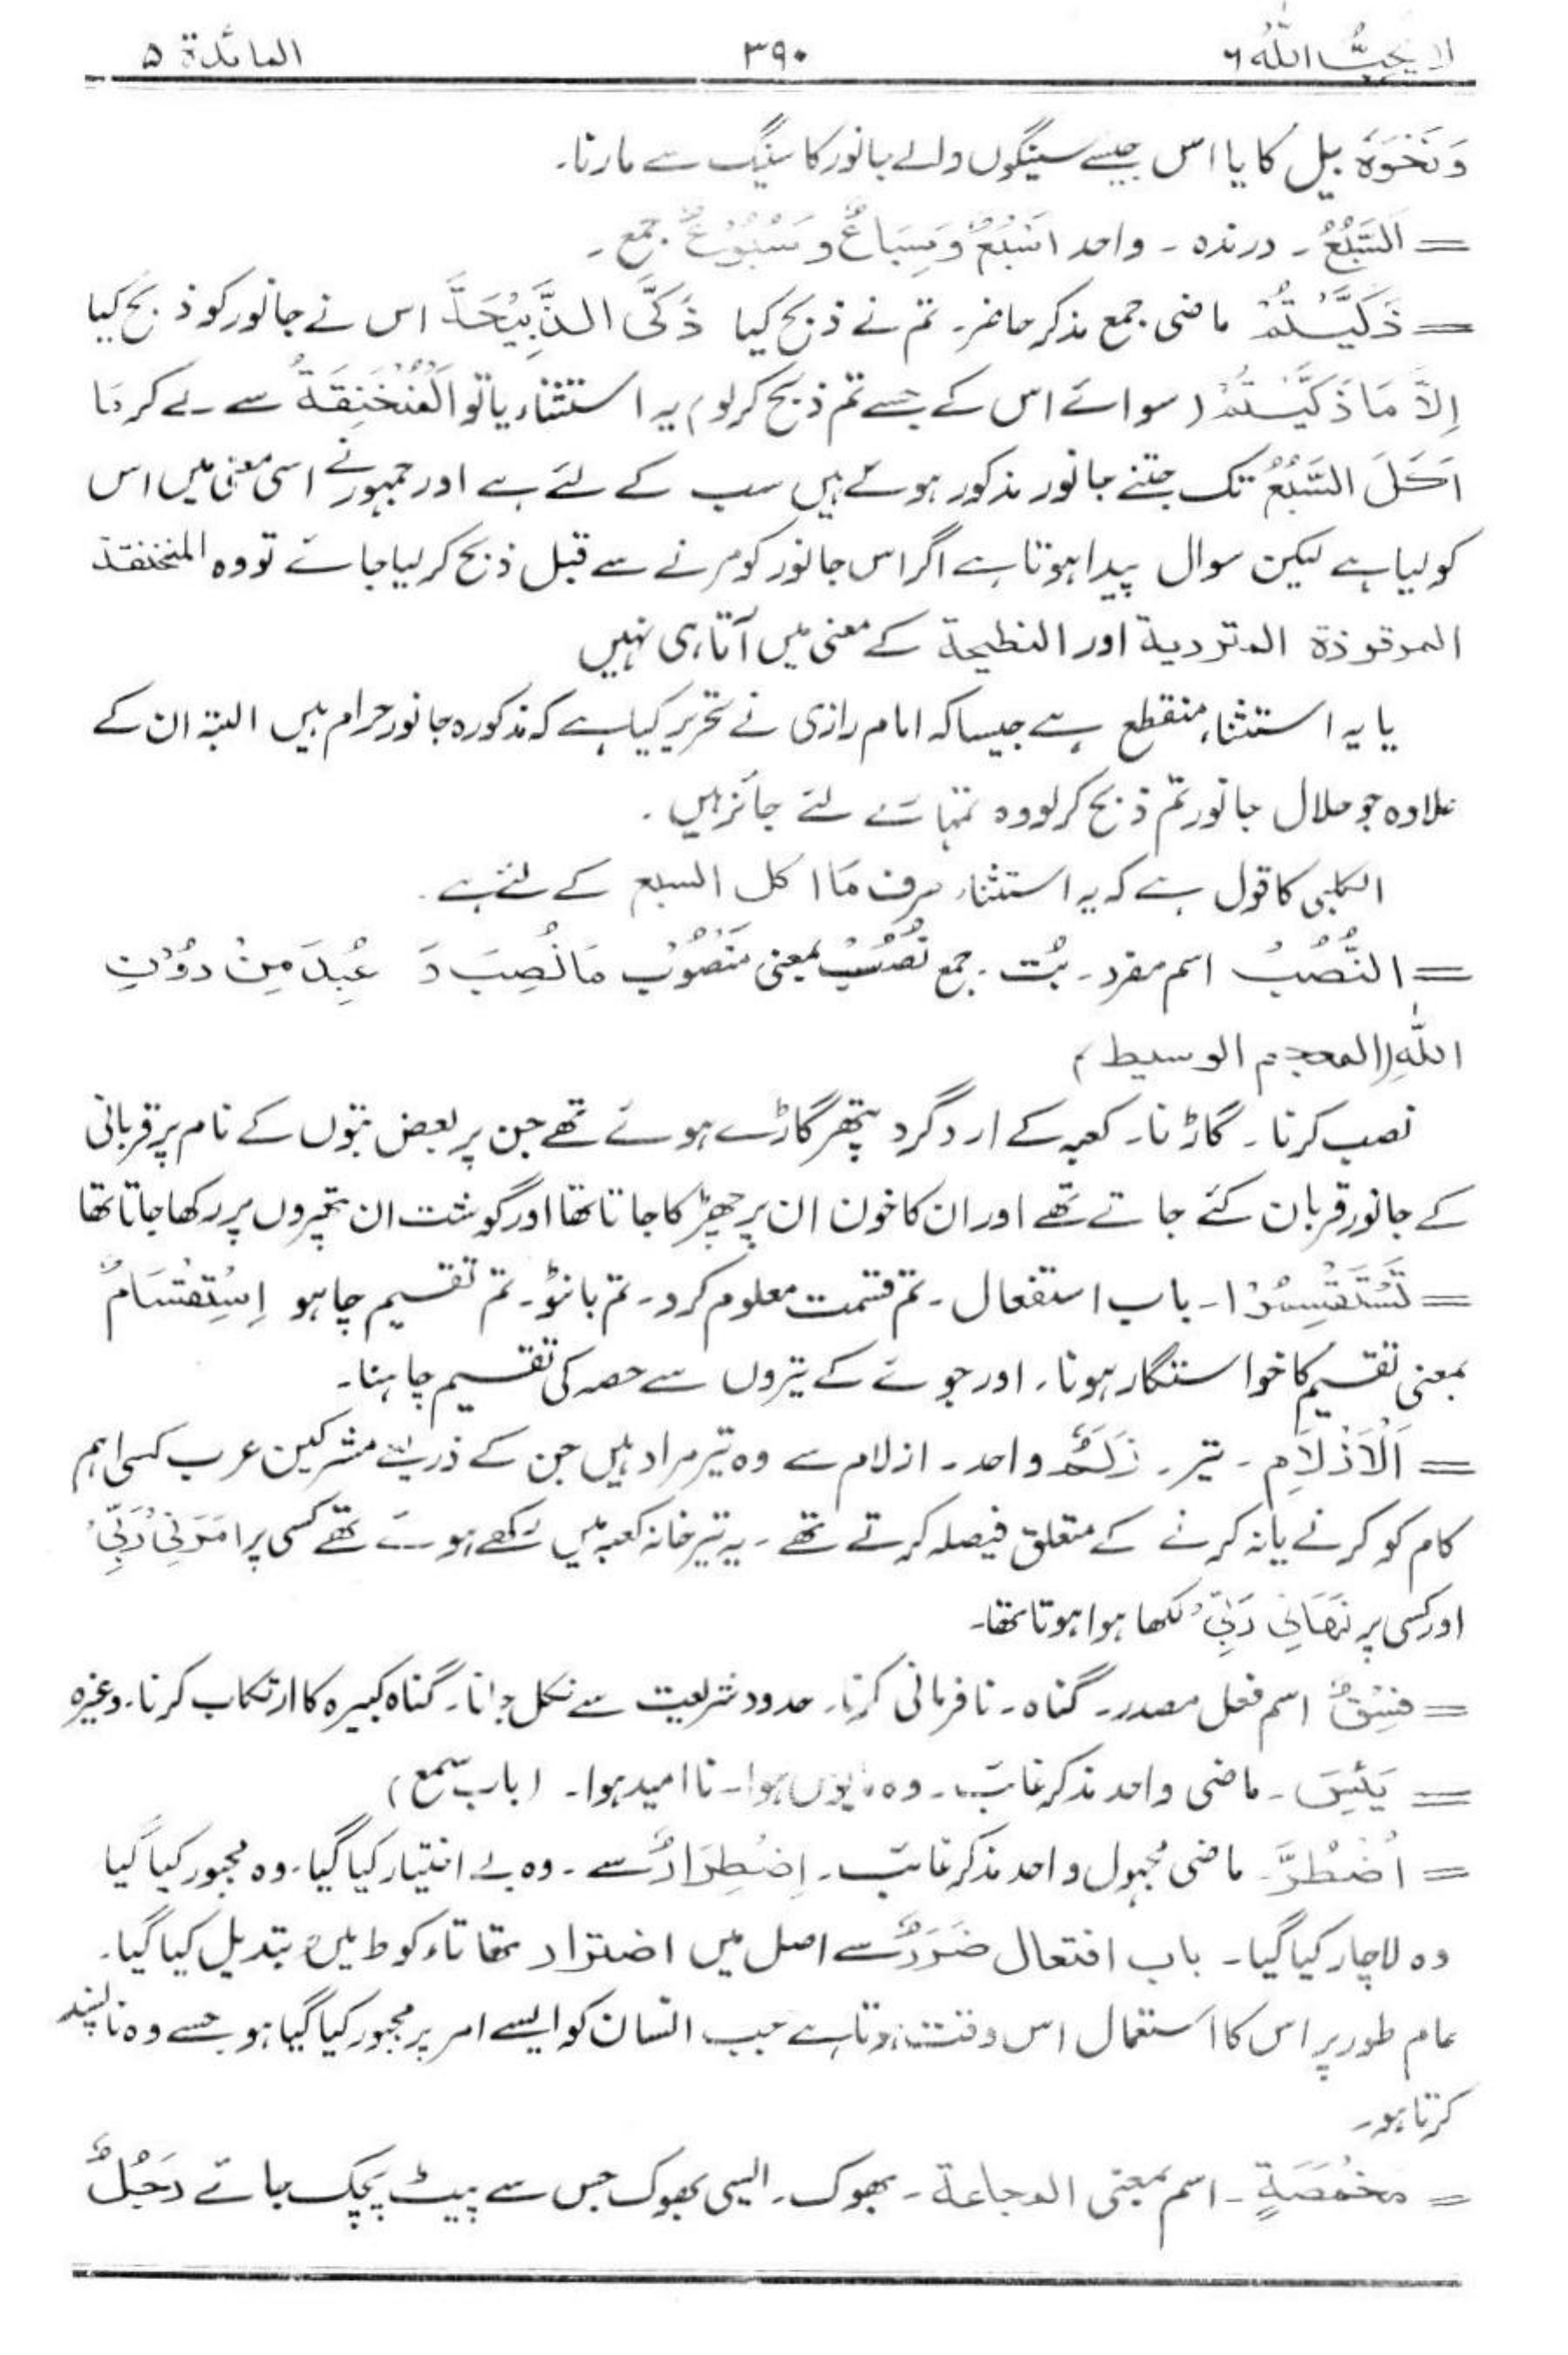 لا یحب اللہ ۶ ۳۹۰ المائدۃ ۵
وَنَحْوَہٗ بیل کا یا اس جیسے سینگوں والے جانور کا سینگ سے مارنا۔
= اَلسَّبُعُ ۔ درندہ ۔ واحد اَسْبُعٌ وَسِبَاعٌ و سُبُوْعٌ جمع ۔
= ذَكَّيْتُمْ ماضی جمع مذکر حاضر۔ تم نے ذبح کیا ذَكَّى الذَّبِيْحَةَ اس نے جانور کو ذبح کیا
اِلَّا مَا ذَكَّيْتُمْ (سوائے اس کے جسے تم ذبح کرلو) یہ استثناء یا تو اَلْمُنْخَنِقَةُ سے لے کر مَا
اَكَلَ السَّبُعُ تک جتنے جانور مذکور ہوئے ہیں سب کے لئے ہے اور جمہور نے اسی معنی میں اس
کو لیا ہے لیکن سوال پیدا ہوتا ہے اگر اس جانور کو مرنے سے قبل ذبح کر لیا جائے تو وہ المنخنقة
الموقوذة المتردية اور النطيحة کے معنی میں آتا ہی نہیں
یا یہ استثناء منقطع ہے جیسا کہ امام رازی نے تحریر کیا ہے کہ مذکورہ جانور حرام ہیں البتہ ان کے
علاوہ جو حلال جانور تم ذبح کرلو وہ تمہارے لئے جائز ہیں ۔
الکلبی کا قول ہے کہ یہ استثناء صرف مَا اکل السبع کے لئے ہے ۔
= النُّصُبُ اسم مفرد۔ بُت ۔ جمع نُصُبٌ بمعنی مَنْصُوْب مَا نُصِبَ وَ عُبِدَ مِنْ دُوْنِ
اللّٰهِ (المعجم الوسيط)
نصب کرنا ۔ گاڑنا ۔ کعبہ کے اردگرد پتھر گاڑے ہوئے تھے جن پر بعض بتوں کے نام پر قربانی
کے جانور قربان کئے جاتے تھے اور ان کا خون ان پر چھڑکا جاتا تھا اور گوشت ان پتھروں پر رکھا جاتا تھا
= تَسْتَقْسِمُوْا ۔ باب استفعال ۔ تم قسمت معلوم کرو ۔ تم بانٹو ۔ تم تقسیم چاہو اِسْتِقْسَامٌ
بمعنی تقسیم کا خواستگار ہونا ۔ اور جوئے کے تیروں سے حصہ کی تقسیم چاہنا ۔
= اَلْاَزْلَامِ ۔ تیر ۔ زَلَمٌ واحد ۔ ازلام سے وہ تیر مراد ہیں جن کے ذریعے مشرکین عرب کسی اہم
کام کو کرنے یا نہ کرنے کے متعلق فیصلہ کرتے تھے ۔ یہ تیر خانہ کعبہ میں رکھے ہوئے تھے کسی پر اَمَرَنِیْ رَبِّیْ
اور کسی پر نَهَانِیْ رَبِّیْ لکھا ہوا ہوتا تھا ۔
= فِسْقٌ اسم فعل مصدر۔ گناہ ۔ نافرمانی کرنا ۔ حدود شریعت سے نکل جانا ۔ گناہ کبیرہ کا ارتکاب کرنا ۔ وغیرہ
= يَئِسَ ۔ ماضی واحد مذکر غائب ۔ وہ مایوس ہوا ۔ ناامید ہوا ۔ (باب سمع)
= اُضْطُرَّ ۔ ماضی مجہول واحد مذکر غائب ۔ اِضْطِرَارٌ سے ۔ وہ بے اختیار کیا گیا ۔ وہ مجبور کیا گیا
وہ لاچار کیا گیا ۔ باب افتعال ضَرَرٌ سے اصل میں اضترار تھا تاء کو ط میں تبدیل کیا گیا ۔
عام طور پر اس کا استعمال اس وقت ہوتا ہے جب انسان کو ایسے امر پر مجبور کیا گیا ہو جسے وہ ناپسند
کرتا ہو ۔
= مَخْمَصَةٍ ۔ اسم بمعنی المجاعة ۔ بھوک ۔ ایسی بھوک جس سے پیٹ پچک جائے رَجُلٌ